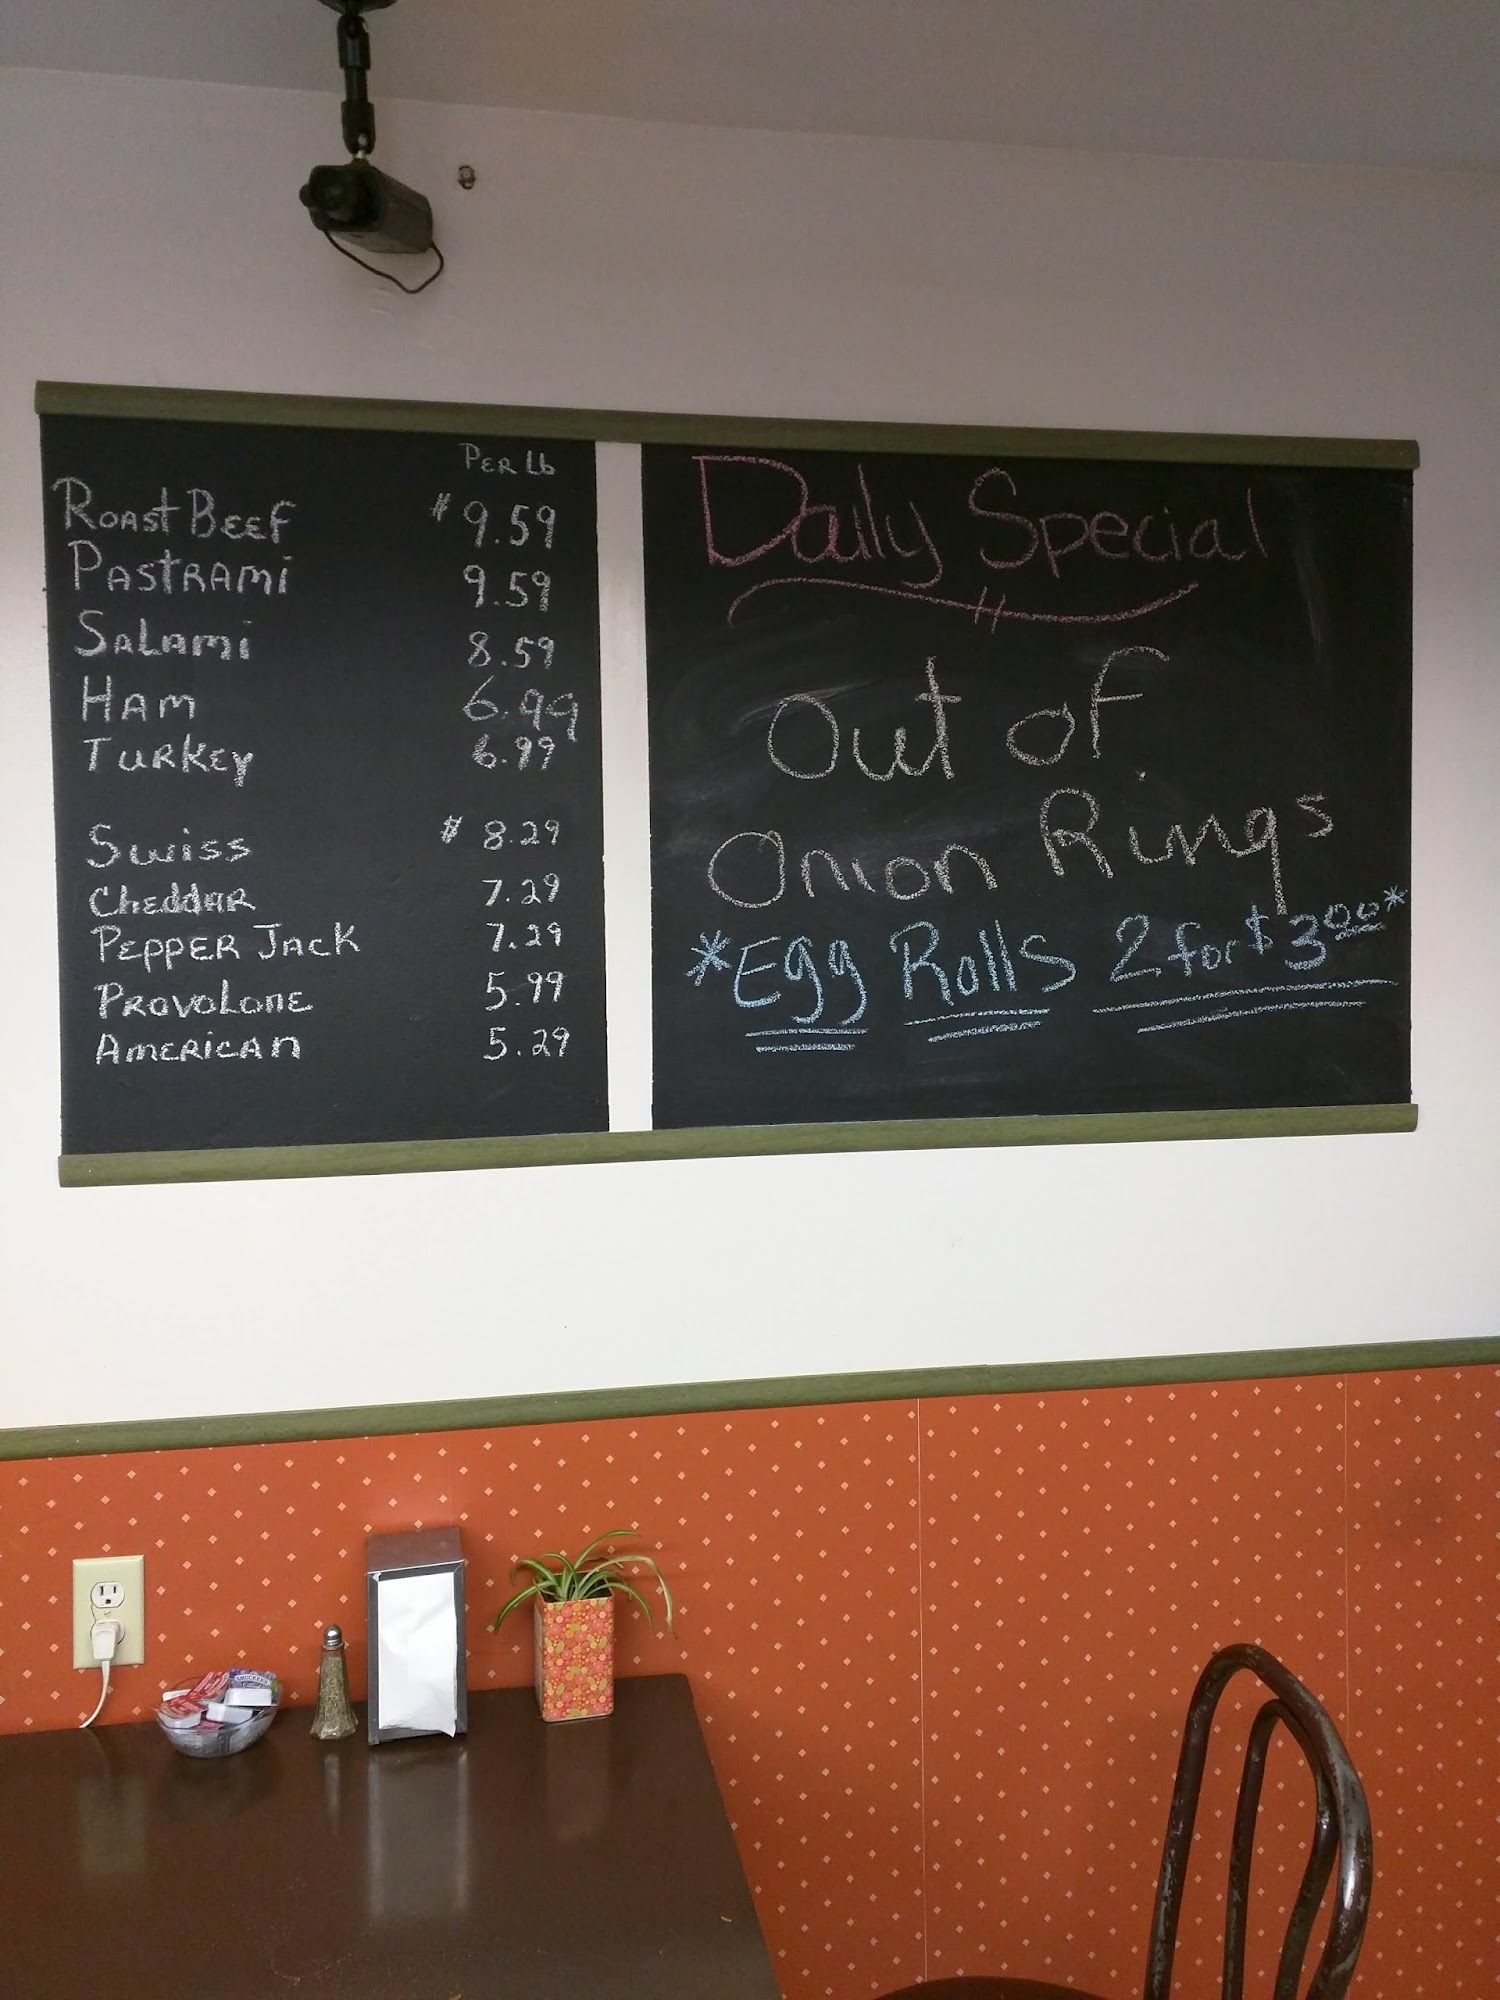 PER Lb
ROAST BEEF $ 9.59
PASTRAMI 9.59
SALAMI 8.59
HAM 6.99
TURKEY 6.99
SWISS $ 8.29
CHEDDAR 7.29
PEPPER JACK 7.29
PROVOLONE 5.99
AMERICAN 5.29
Daily Special
Out of
Onion Rings
*Egg Rolls 2 for $3.00*